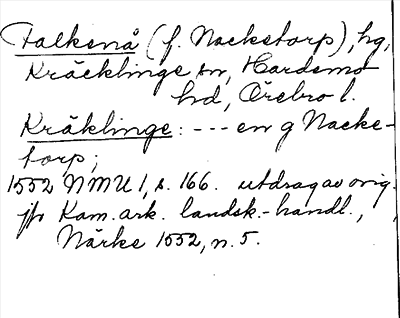 Falkenå (f. Nacketorp), hg,
Kräcklinge sn, Hardemo
hd, Örebro l.
Kräklinge: --- en g Nacke-
torp;
1552 NMU 1, s. 166. utdrag av orig.
jfr Kam. ark. landsk.-handl.,
Närke 1552, n. 5.